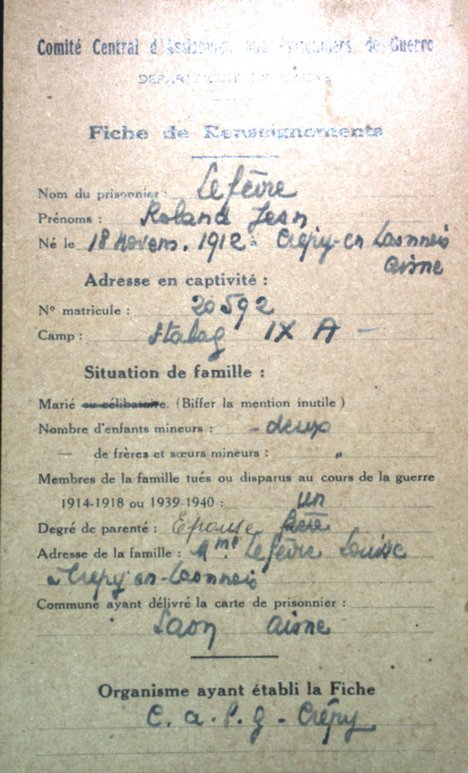 Comité Central d'Assistance aux Prisonniers de Guerre
DÉPARTEMENT DE L'AISNE
Fiche de Renseignements
Nom du prisonnier : Lefèvre
Prénoms : Roland Jean
Né le 18 Novem. 1912 à Crépy-en Laonnois
aisne
Adresse en captivité :
N° matricule : 20592
Camp : Stalag IX A -
Situation de famille :
Marié ou célibataire. (Biffer la mention inutile)
Nombre d'enfants mineurs : - deux
— de frères et sœurs mineurs : "
Membres de la famille tués ou disparus au cours de la guerre
1914-1918 ou 1939-1940 : un
Degré de parenté : Epouse frère
Adresse de la famille : Mme Lefèvre Louise
Crépy-en-Laonnois
Commune ayant délivré la carte de prisonnier :
Laon aisne
Organisme ayant établi la Fiche
C. a. P. g - Crépy